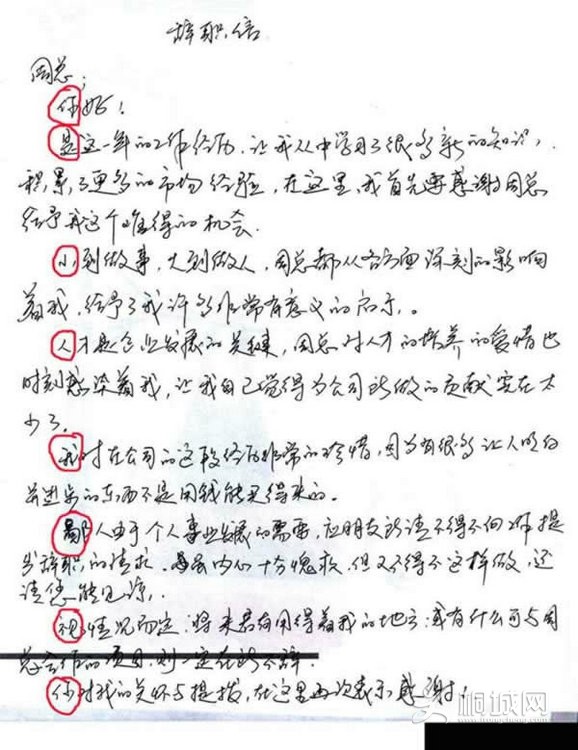 辞职信
周总：
你好！
是这一年的工作经历，让我从中学习了很多新的知识，
积累了更多的市场经验，在这里，我首先要感谢周总
给予我这个难得的机会。
小到做事，大到做人，周总都从各方面深刻的影响
着我，给予了我许多非常有意义的启示。
人才是企业发展的关键，周总对人才的培养的爱惜也
时刻感染着我，让我自己觉得为公司所做的贡献实在太
少了。
我对在公司的这段经历非常的珍惜，因为有很多让人明白
去进步的东西不是用钱能买得来的。
鄙人由于个人事业发展的需要，应朋友所请不得不向你提
出辞职的请求，内心十分愧疚，但又不得不这样做，还
请您能见谅。
视情况而定：将来若有用得着我的地方；或有什么可与周
总合作的项目，则一定在所不辞。
你对我的关怀与提拔，在这里再次表示感谢！
桐城网